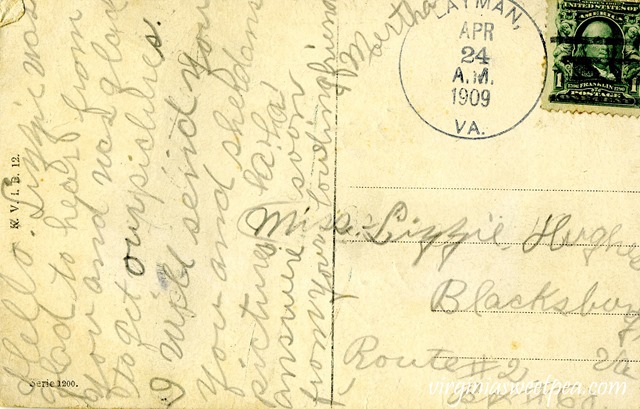 Hello. Lizzie was
glad to hear from
you and was glad
to get our pictures.
I will send you
you and sheldans
picture ha! ha!
answer soon
from your loving friend
Martha
K. V. i. B. 12.
Serie 1200.
LAYMAN,
APR
24
A.M.
1909
VA.
UNITED STATES OF
AMERICA
1 FRANKLIN 1
POSTAGE
Miss. Lizzie Hughe
Blacksburg
Va
Route #2
Box
virginiasweetpea.com